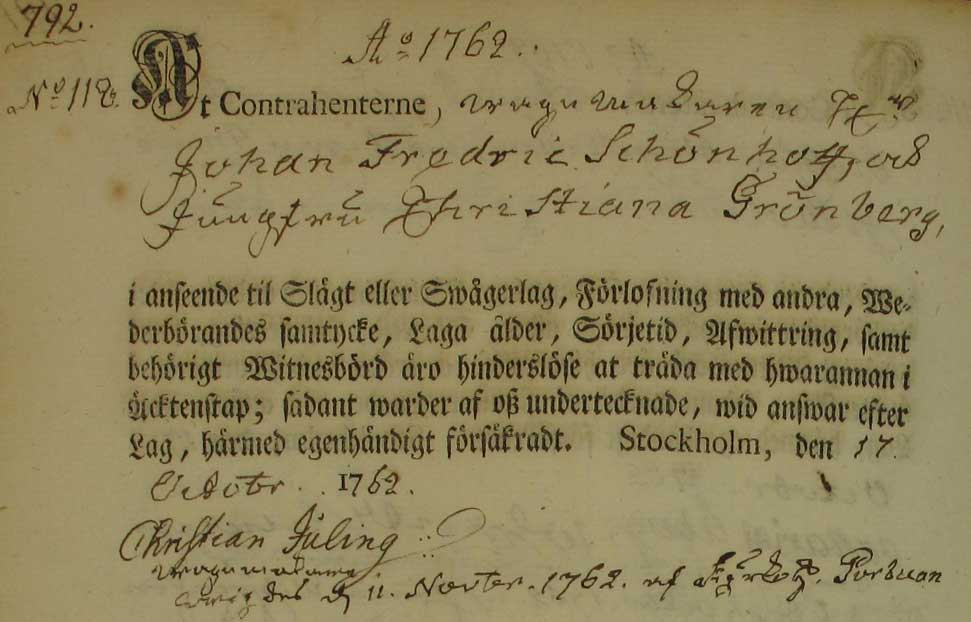 792.
Aº 1762.
Nº 118. At Contrahenterne, wagnmakaren H:r
Johan Fredric Schönhoff, och
Jungfru Christiana Grönberg,
i anseende til Slägt eller Swågerlag, Förlofning med andra, We-
derbörandes samtycke, Laga ålder, Sörjetid, Afwittring, samt
behörigt Witnesbörd äro hinderslöse at träda med hwarannan i
Äcktenskap; sådant warder af oß undertecknade, wid answar efter
Lag, härmed egenhändigt försäkradt. Stockholm, den 17
Octobr. 1762.
Christian Juling
wagnmakare
wigdes d 11. Novbr. 1762. af